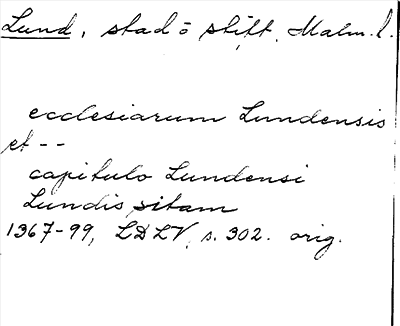 Lund, stad o stift, Malm. l.
ecclesiarum Lundensis
et --
capitulo Lundensi
Lundis sitam
1367-99, LDLV, s. 302. orig.